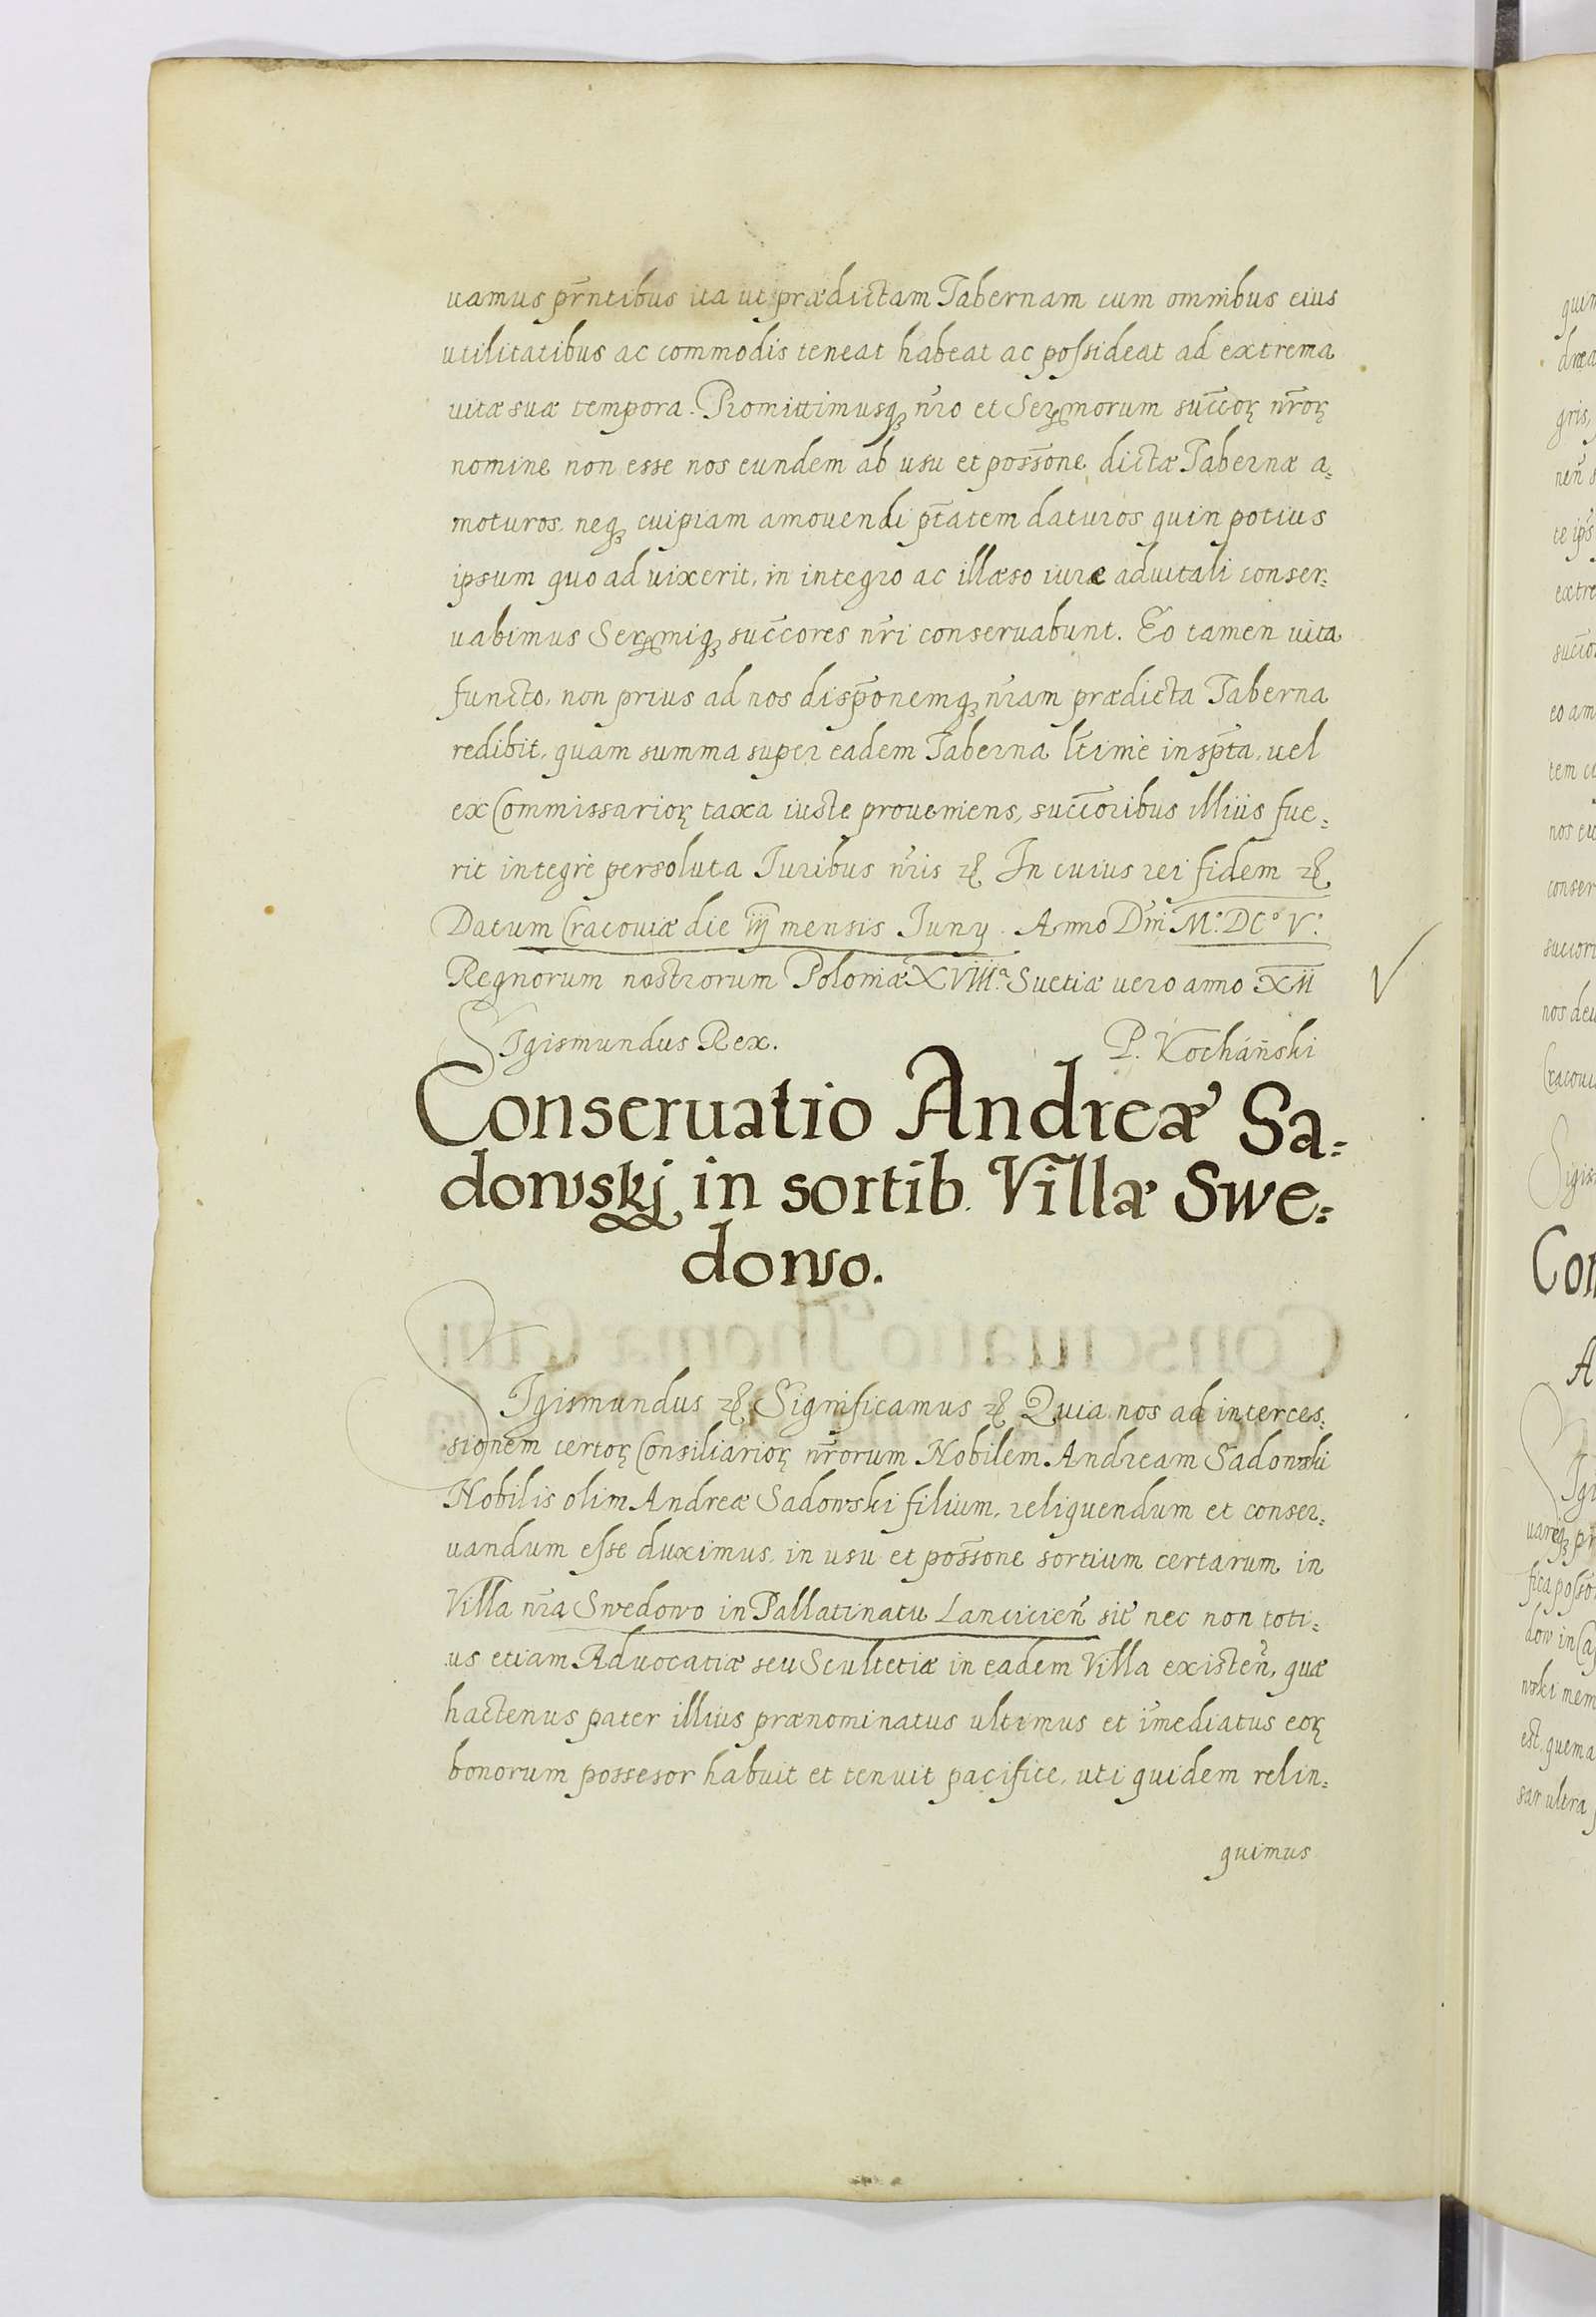 uamus pr̃ntibus ita ut prædictam Tabernam cum omnibus eius
utilitatibus ac commodis teneat habeat ac possideat ad extrema
uitæ suæ tempora. Promittimusqꝫ nr̃o et Sermorum succ̃oꝝ nr̃oꝝ
nomine non esse nos eundem ab usu et poss̃one dictæ Tabernæ a=
moturos, neqꝫ cuipiam amouendi pt̃atem daturos quin potius
ipsum quo ad uixerit, in integro ac illæso iure aduitali conser=
uabimus Sermiqꝫ succ̃ores nr̃i conseruabunt. Eo tamen uita
functo, non prius ad nos disp̃onemqꝫ nr̃am prædicta Taberna
redibit, quam summa super eadem Taberna lt̃imè insp̃ta, uel
ex Commissarioꝝ taxa iuste proueniens, succ̃oribus illius fue=
rit integrè persoluta Iuribus nr̃is ꝛ In cuius rei fidem ꝛ
Datum Cracouiæ die iij mensis Iuny. Anno Dñi M.° DC° V.°
Regnorum nostrorum Poloniæ XVIII.ᵃ Suetiæ uero anno XII
Sigismundus Rex. P. Kochański
Conseruatio Andreæ Sa=
dowskj in sortib. Villæ Swe=
dowo.
Sigismundus ꝛ Significamus ꝛ Quia nos ad interces=
sionem certoꝝ Consiliarioꝝ nr̃orum Nobilem Andream Sadowski
Nobilis olim Andreæ Sadowski filium, reliquendum et conser=
uandum esse duximus, in usu et poss̃one sortium certarum in
Villa nr̃a Swedowo in Pallatinatu Lancicien̄ sit̃ nec non toti=
us etiam Aduocatiæ seu Scultetiæ in eadem Villa existen̄, quæ
hactenus pater illius prænominatus ultimus et im̃ediatus eoꝝ
bonorum possesor habuit et tenuit pacifice, uti quidem relin=
quimus